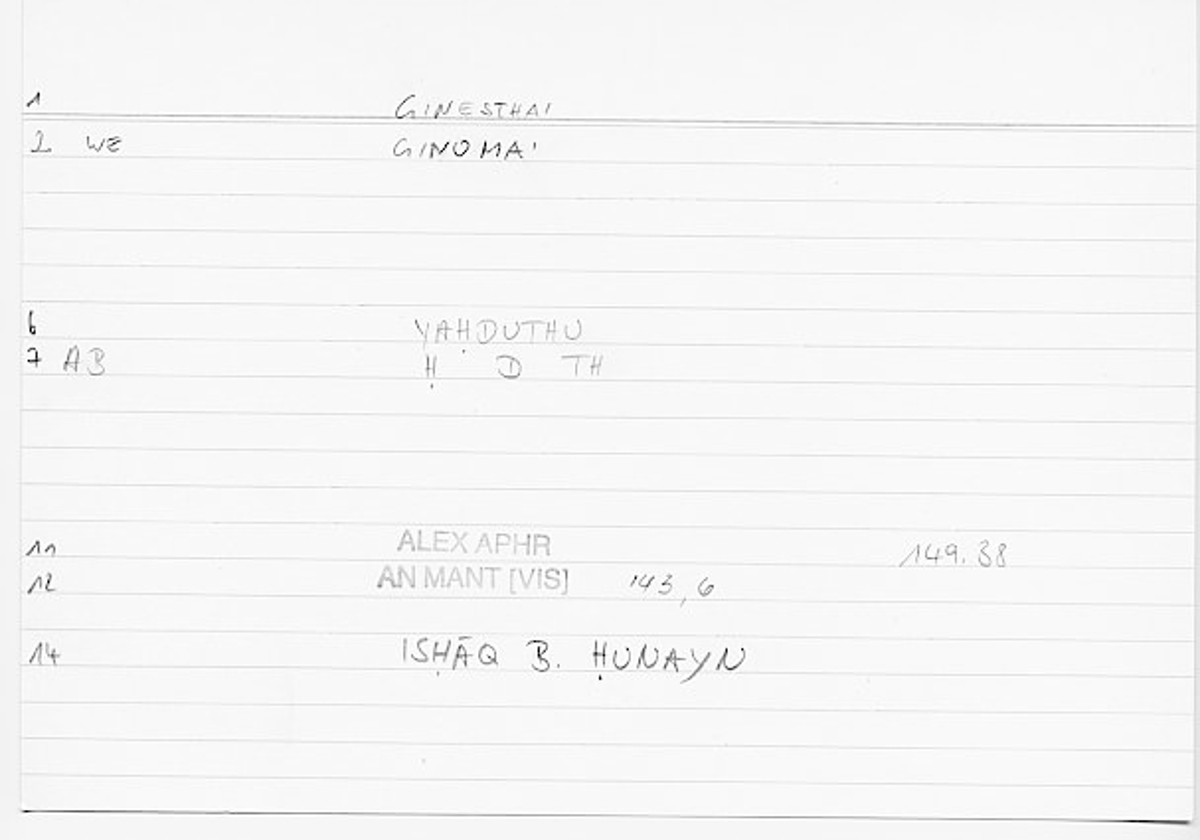 1 GINESTHAI
2 WE GINOMAI
6 YAḤDUTHU
7 AB Ḥ D TH
11 ALEX APHR 149.38
12 AN MANT [VIS] 143,6
14 ISḤĀQ B. ḤUNAYN